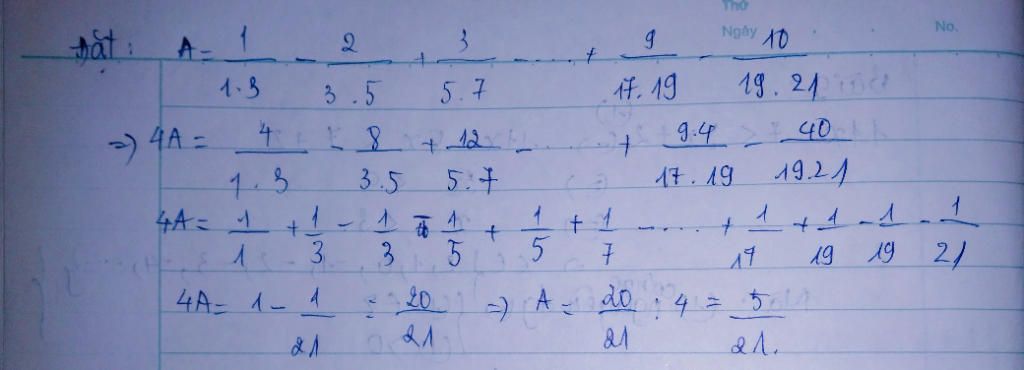 Thứ
Ngày No.
Đặt: A = 1/1.3 - 2/3.5 + 3/5.7 - .... + 9/17.19 - 10/19.21
=> 4A = 4/1.3 - 8/3.5 + 12/5.7 - ... + 9.4/17.19 - 40/19.21
4A = 1/1 + 1/3 - 1/3 - 1/5 + 1/5 + 1/7 - .... + 1/17 + 1/19 - 1/19 - 1/21
4A = 1 - 1/21 = 20/21 => A = 20/21 : 4 = 5/21.